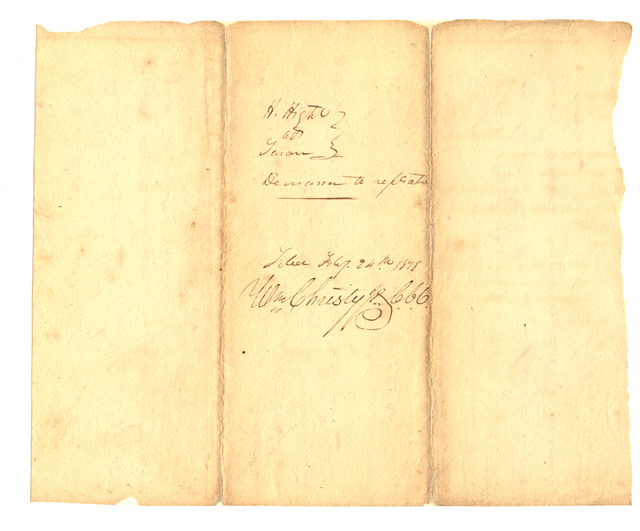 H. Hight }
ads }
Susan }
Demurrer to replicatn
Filed Feby. 24th 1828
Wm Christy Jr C.C.C.